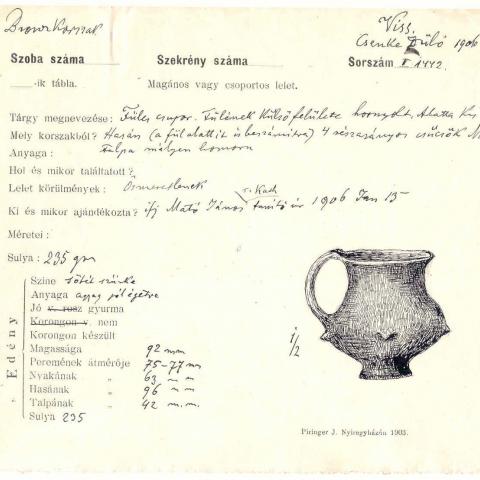 Bronz Korszak
Viss.
Csenke Dűlő 1906
Szoba száma
Szekrény száma
Sorszám I 1442.
-ik tábla.
Magános vagy csoportos lelet.
Tárgy megnevezése: Füles csupor. Fülének külső felülete hornyolt. Alatta kis
Mely korszakból? Hasán (a fül alattit is beszámítva) 4 részarányos csücsök
Anyaga: Talpa mélyen homorú
Hol és mikor találtatott?
Lelet körülmények: Ösmeretlenek
r. Kath
Ki és mikor ajándékozta? ifj Mató János tanító úr 1906 Jan 15
Méretei:
Sulya: 235 gr
Edény
Szine sötét szürke
Anyaga agyag jól égetve
Jó v. rosz gyurma
Korongon v. nem
Korongon készült
Magassága 92 mm
Peremének átmérője 75-77 mm
Nyakának " 63 m m
Hasának " 96 m m
Talpának " 42 m.m.
Sulya 235
1/2
Piringer J. Nyiregyházán 1903.